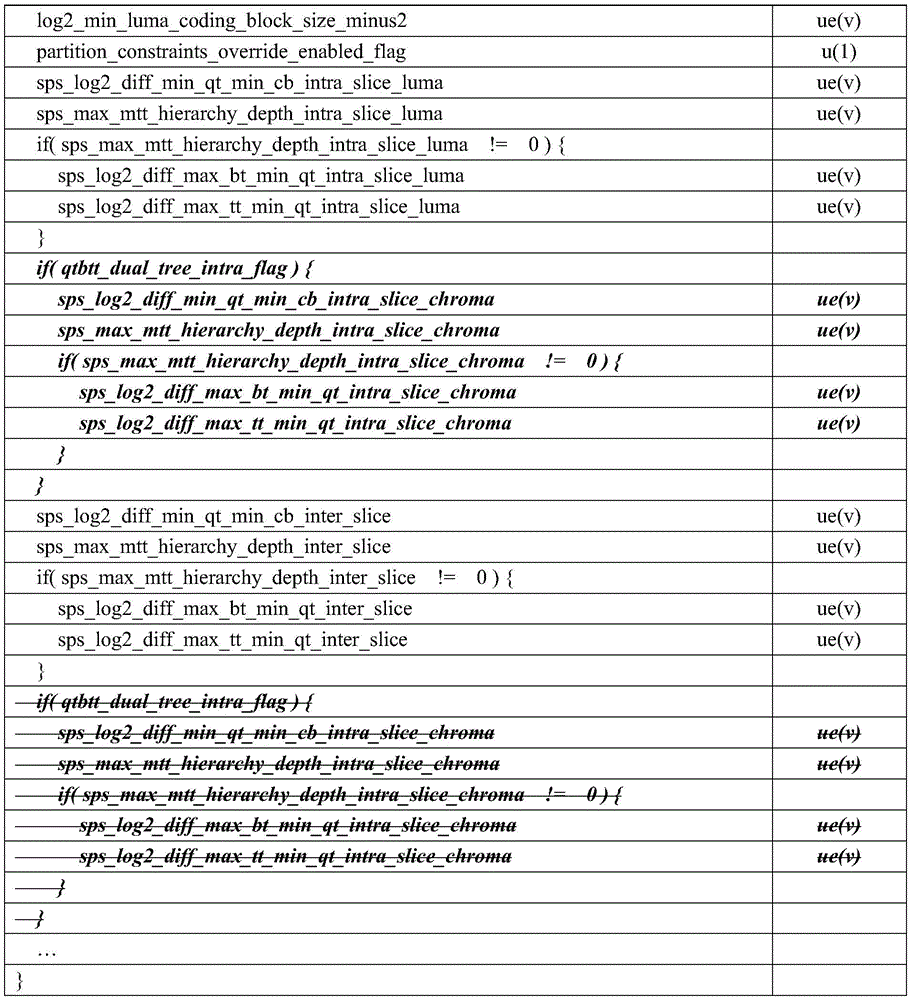 log2_min_luma_coding_block_size_minus2 ue(v)
partition_constraints_override_enabled_flag u(1)
sps_log2_diff_min_qt_min_cb_intra_slice_luma ue(v)
sps_max_mtt_hierarchy_depth_intra_slice_luma ue(v)
if( sps_max_mtt_hierarchy_depth_intra_slice_luma != 0 ) {
sps_log2_diff_max_bt_min_qt_intra_slice_luma ue(v)
sps_log2_diff_max_tt_min_qt_intra_slice_luma ue(v)
}
if( qtbtt_dual_tree_intra_flag ) {
sps_log2_diff_min_qt_min_cb_intra_slice_chroma ue(v)
sps_max_mtt_hierarchy_depth_intra_slice_chroma ue(v)
if( sps_max_mtt_hierarchy_depth_intra_slice_chroma != 0 ) {
sps_log2_diff_max_bt_min_qt_intra_slice_chroma ue(v)
sps_log2_diff_max_tt_min_qt_intra_slice_chroma ue(v)
}
}
sps_log2_diff_min_qt_min_cb_inter_slice ue(v)
sps_max_mtt_hierarchy_depth_inter_slice ue(v)
if( sps_max_mtt_hierarchy_depth_inter_slice != 0 ) {
sps_log2_diff_max_bt_min_qt_inter_slice ue(v)
sps_log2_diff_max_tt_min_qt_inter_slice ue(v)
}
if( qtbtt_dual_tree_intra_flag ) {
sps_log2_diff_min_qt_min_cb_intra_slice_chroma ue(v)
sps_max_mtt_hierarchy_depth_intra_slice_chroma ue(v)
if( sps_max_mtt_hierarchy_depth_intra_slice_chroma != 0 ) {
sps_log2_diff_max_bt_min_qt_intra_slice_chroma ue(v)
sps_log2_diff_max_tt_min_qt_intra_slice_chroma ue(v)
}
}
…
}